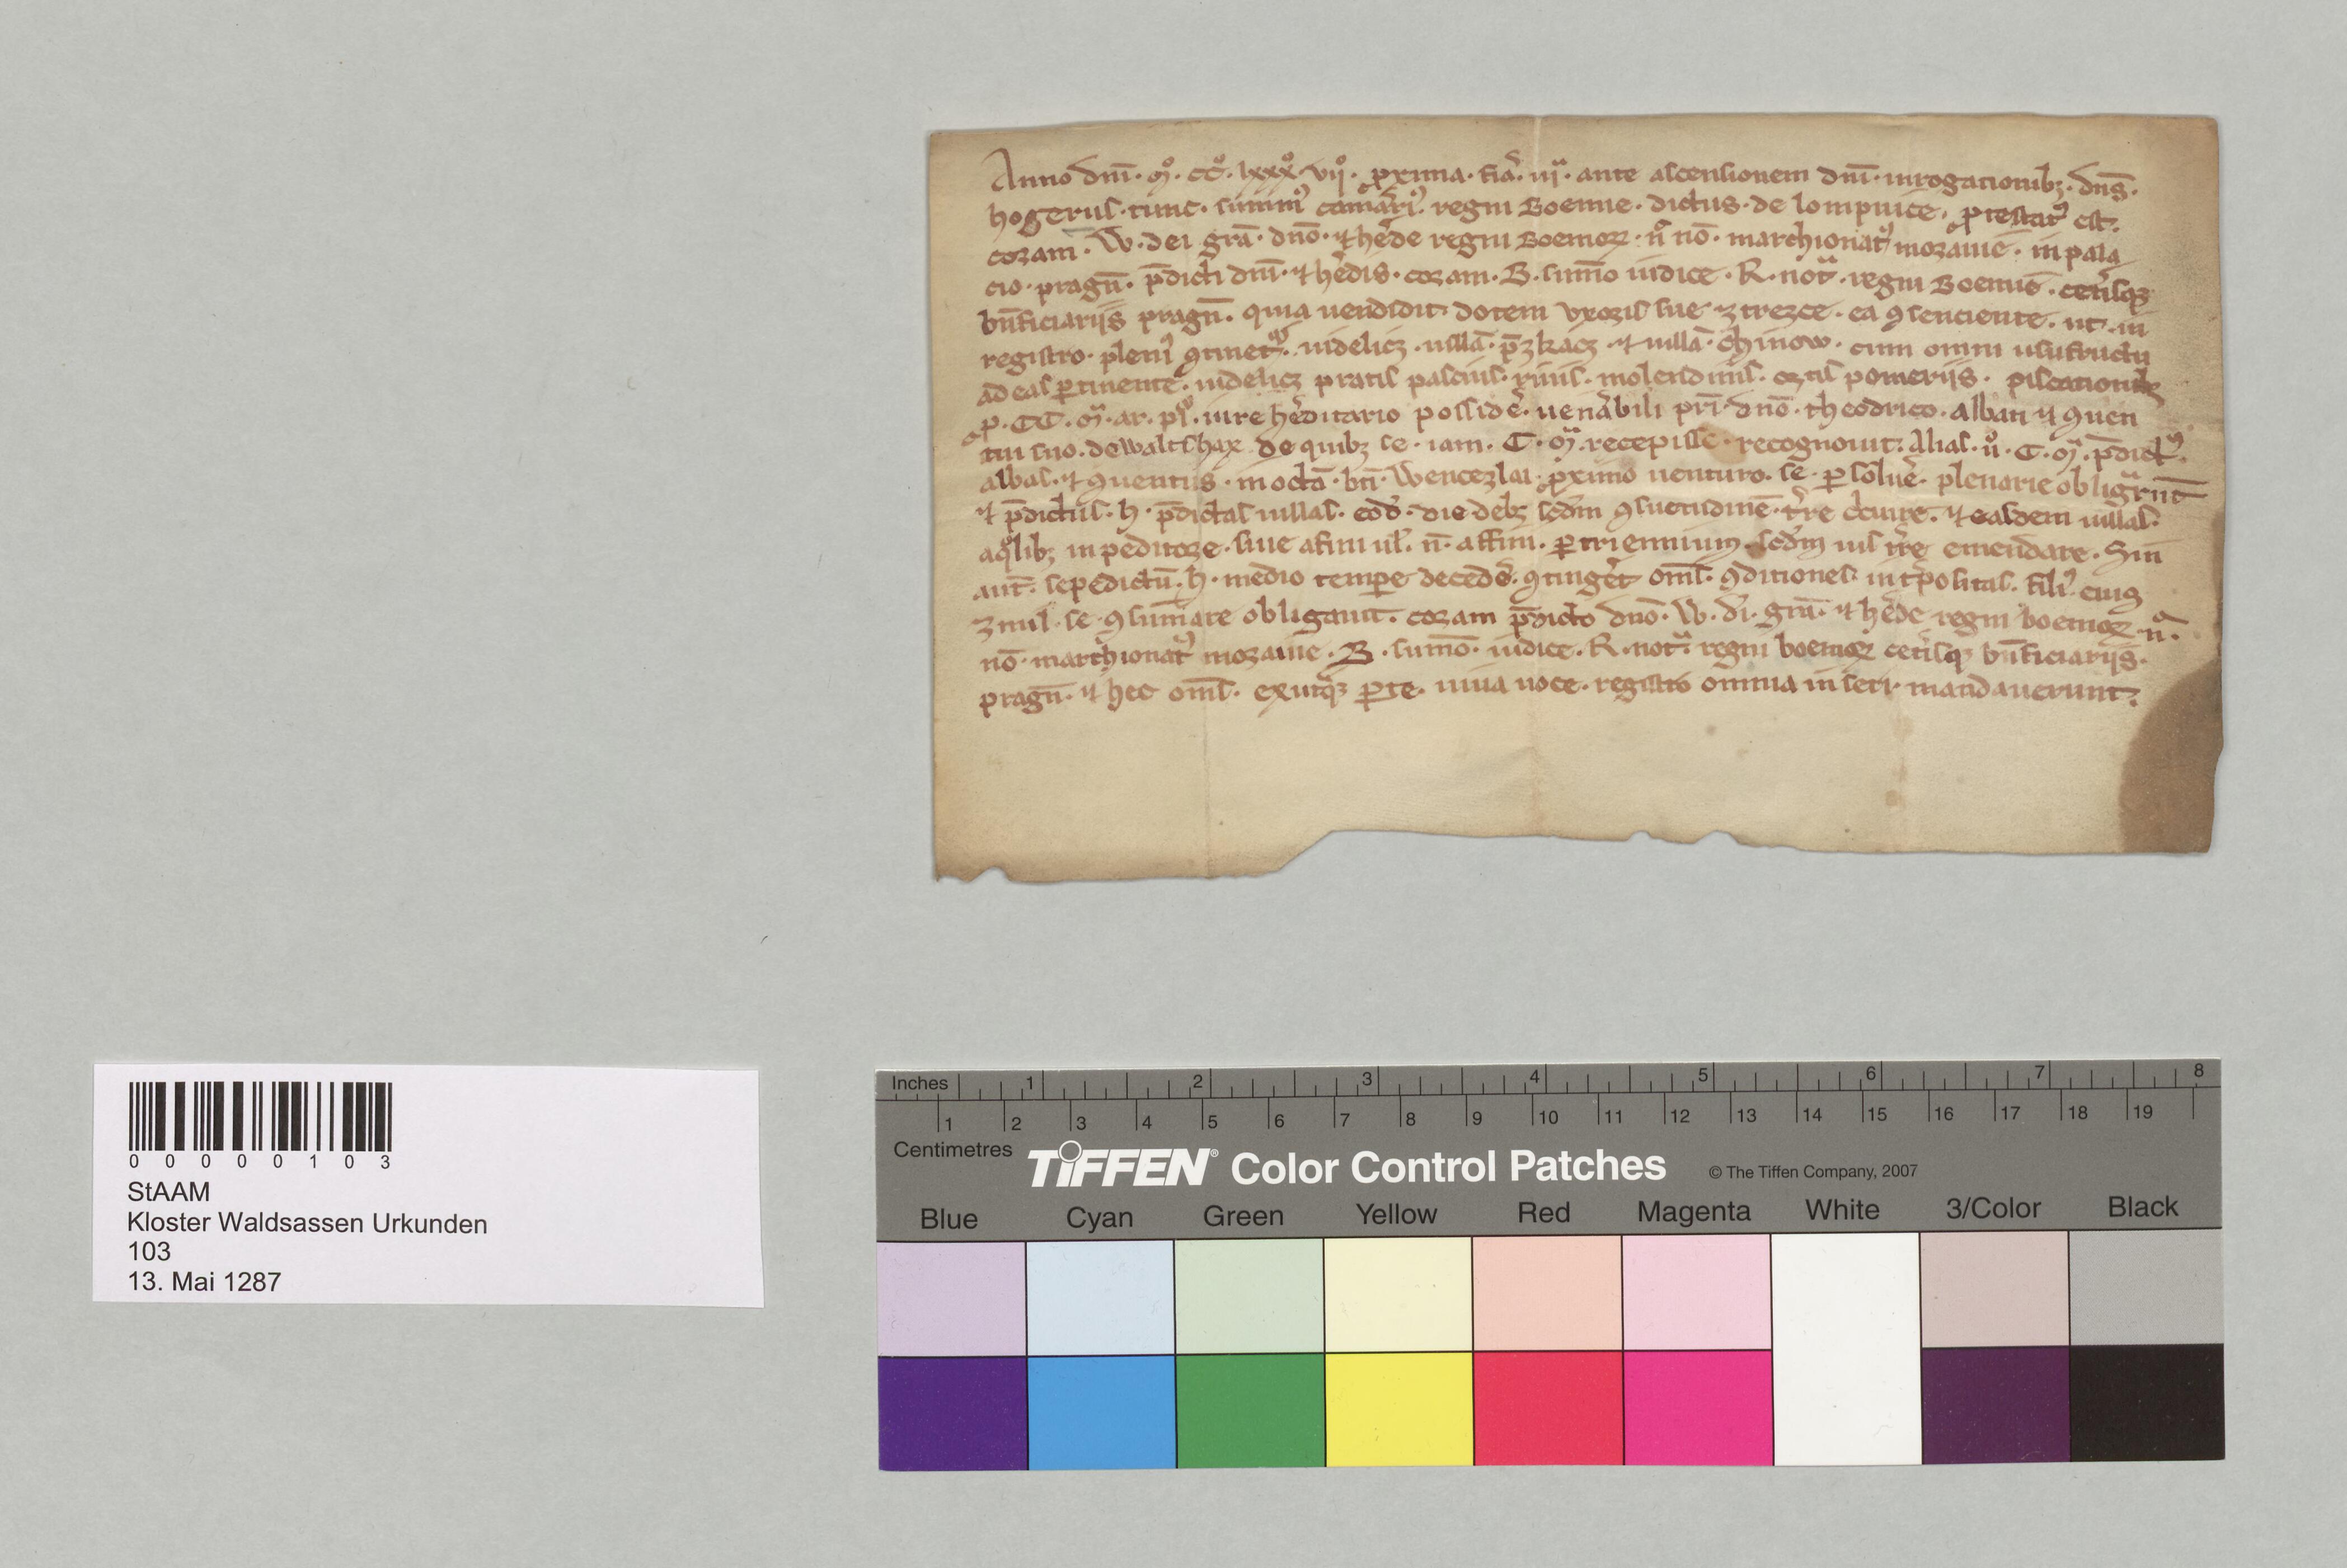 Anno dnī. mͦ. ccͦ. lxxxͦ. vijͦ. proxima. fīa. iijᵃ. ante ascensionem dnī. in rogacionibꝫ. dns̄.
hogerus. tunc. summꝰ camārꝰ. regni Boemie. dictus. de lompnicē, protestatꝰ est.
coram. W. dei grā. dnō. ⁊ hēde regni Boemoꝝ. nͨ nō. marchionatꝰ morauie. in pala
cio. pragn̄. p̄dicti dnī. ⁊ hēdis. coram. B. summo iudice. R. notᵃ. regni Boemie. cetisqꝫ
bn̄ficiarijs pragn̄. quia uendidit dotem vxoris sue ztrezce. ea ꝯsenciente. ut in
registro. plenꝰ ꝯtinetᷣ. uidelicꝫ. uillā. p̄zkacz. ⁊ uillā. chinow. cum omni usufructu
ad eas ꝑtinente. uidelicꝫ pratis pascuis. riuis. molendinis. ortis pomerijs. piscationibꝫ
ꝓ. CC. mᵃ. ar. pͦ. iure hēditario possidē. uenābili prī. dnō. theodrico. Abbati ⁊ ꝯuen
tui suo. de waltshax de quibꝫ se. iam. C. mᵃ. recepisse. recognouit. Alias. uͦ. C. mᵃ. p̄dictꝰ.
abbas. ⁊ ꝯuentus. in octā. bn̄i. Wencezlai. proximo uenturo. se. ꝑsoluē. plenarie obligārūt
⁊ p̄dictus. h. p̄dictas uillas. eod̄. die debꝫ scdm̄ ꝯsuetudinē. tr̄e ex̄cuire. ⁊ easdem uillas.
a qͦlibꝫ inpeditore. siue afini ul̄. n̄. affini. ꝑ triennium. scdm̄ ius tr̄e emendare. Sin
aut̄. sepedictū. h. medio tempore decedē. ꝯtingēt om̄s. ꝯditiones int̄positas. filiꝰ eius
zmil. se. ꝯsum̄are obligauit. coram p̄dicto dnō. W. dī. grā. ⁊ hēde regni boemoꝝ nͨ.
nō. marchionatꝰ morauie. B. summō. iudice. R. notᵃ. regni boemoꝝ cetisqꝫ bn̄ficiarijs.
pragn̄. ⁊ hec om̄s. ex utqꝫ ꝑte. uiua uoce. registro omnia inseri mandauerunt.
00000103
StAAM
Kloster Waldsassen Urkunden
103
13. Mai 1287
Inches 1 2 3 4 5 6 7 8
1 2 3 4 5 6 7 8 9 10 11 12 13 14 15 16 17 18 19
Centimetres
TIFFEN® Color Control Patches © The Tiffen Company, 2007
Blue Cyan Green Yellow Red Magenta White 3/Color Black